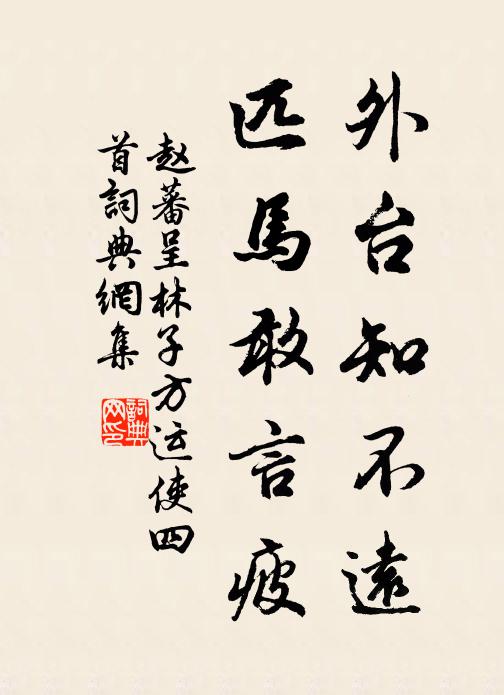 外台知不遠
匹馬敢言疲
赵蕃呈林子方运使四
首詞典網集
詞典
网印